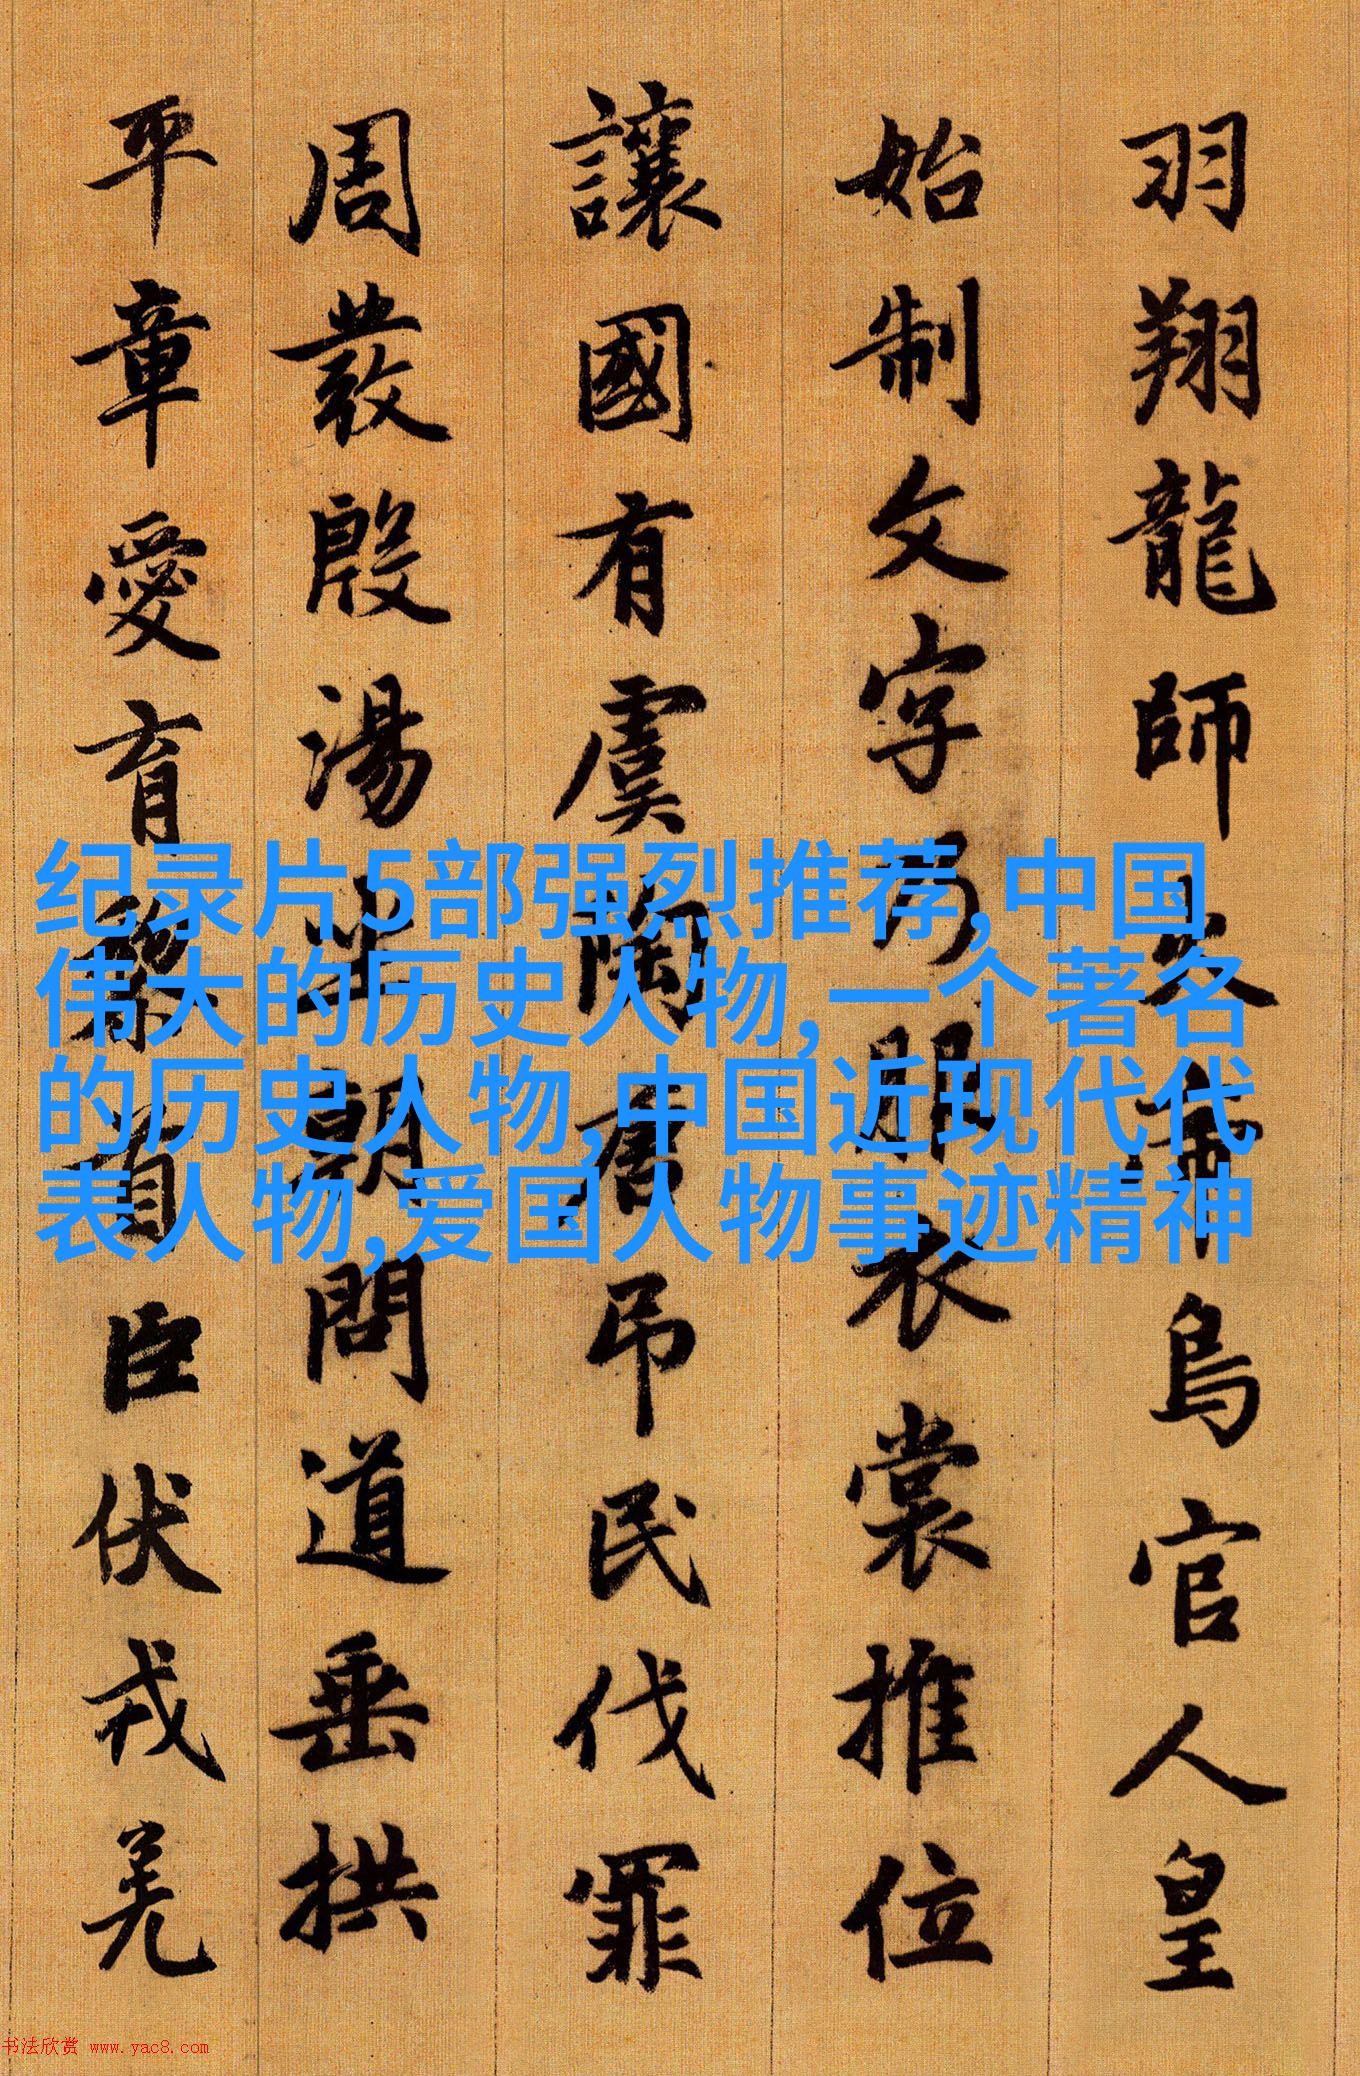 羽翔龍師火帝鳥官人皇
始制文字乃服衣裳推位
讓國有虞陶唐吊民伐罪
周發殷湯坐朝問道垂拱
平章愛育黎首臣伏戎羌
纪录片5部强烈推荐,中国
伟大的历史人物,一个著名
的历史人物,中国近现代代
表人物,爱国人物事迹精神
书法欣赏 www.yac8.com